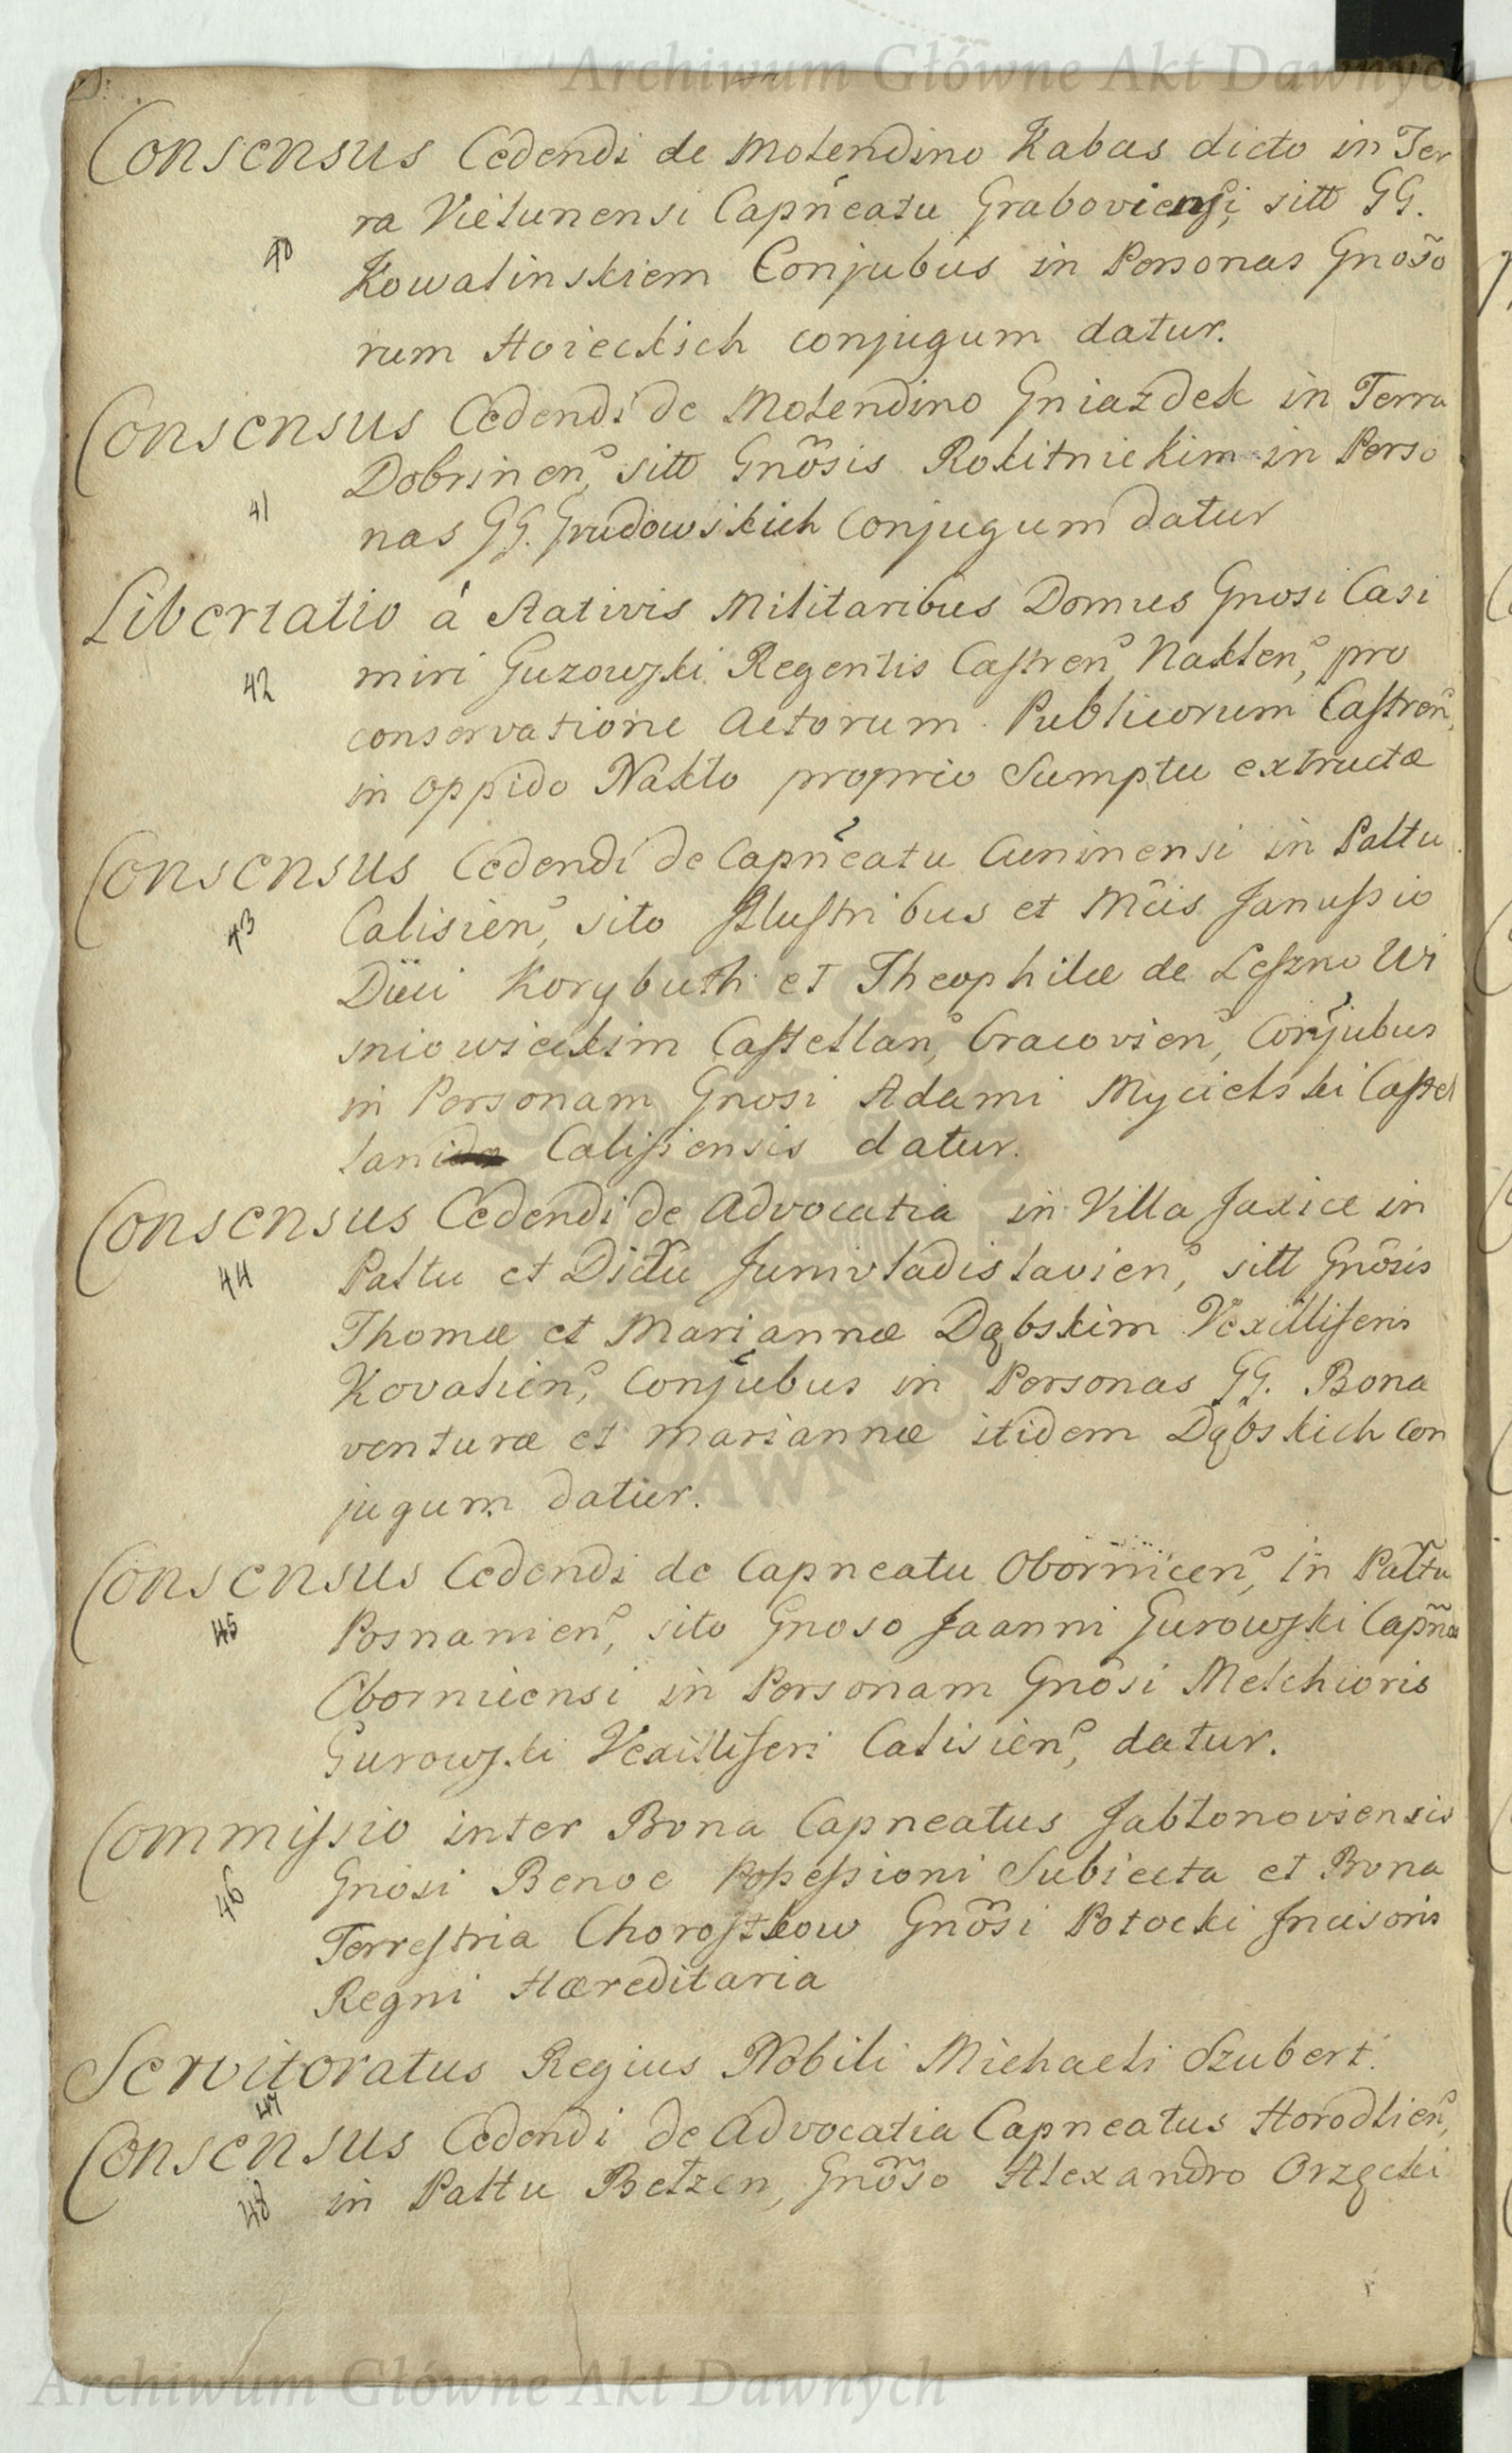 Archiwum Główne Akt Dawnych
Consensus Cedendi de Molendino Kabas dicto in Ter
ra Vielunensi Capñeatu Graboviensi, sitt GG.
40
Kowalinskiem Conjubus in Personas Gnosõ
rum Hoieckich conjugum datur.
Consensus Cedendi de Molendino Gniazdek in Terra
Dobrinen, sitt Gnõsis Rokitnickim in Perso
41
nas GG. Grudowskich conjugum datur
Libertatio á Stativis Militaribus Domus Gnosi Casi
miri Guzowski Regentis Castren, Naklen, pro
42
conservatione Actorum Publicorum Castren,
in oppido Nakło proprio Sumptu extructæ
Consensus Cedendi de Capñeatu Cuninensi in Pałtu
Calisien, sito Illustribus et Mcis Janussio
43
Duci Korybuth et Theophilæ de Leszno Wi
sniowieckim Castellan, Cracovien, Conjubus
in Personam Gnosi Adami Mycielski Castel
lani Calissiensis datur.
Consensus Cedendi de Advocatia in Villa Jaxice in
Pałtu et Dictu Junivladislavien, sitt Gnõsis
44
Thomæ et Mariannæ Dąbskim Vexilliferis
Kovalien, Conjubus in Personas GG. Bona
venturæ et Mariannæ itidem Dąbskich con
jugum datur.
Consensus Cedendi de Capneatu Obornicen, in Pałtu
Posnanien, sito Gnoso Joanni Gurowski Capñeo
45
Oborniciensi in Personam Gnõsi Melchioris
Gurowski Vexilliferi Calisien, datur.
Commissio inter Bona Capneatus Jabłonoviensis
Gnosi Benoe Possessioni Subiecta et Bona
46
Terrestria Chorostkow Gnõsi Potocki Incisoris
Regni Hæreditaria
Servitoratus Regius Nobili Michaeli Szubert.
47
Consensus Cedendi de Advocatia Capneatus Horodlien,
48
in Pałtu Bełzen, Gnõso Alexandro Orzęcki
Archiwum Główne Akt Dawnych